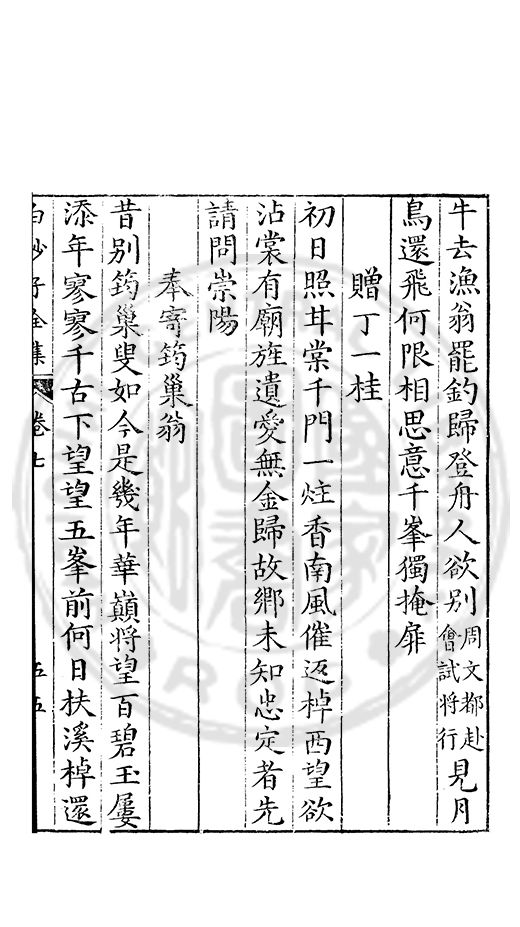 牛去漁翁罷釣歸登舟人欲别周文都赴會試將行見月
鳥還飛何限相思意千峯獨掩扉
贈丁一桂
初日照甘棠千門一炷香南風催返棹西望欲
沾裳有廟旌遺愛無金歸故鄉未知忠定者先
請問崇陽
奉寄筠巢翁
昔别筠巢叟如今是幾年華巔將望百碧玉屢
添年寥寥千古下望望五峯前何日扶溪棹還
白沙子全集 卷七 五五